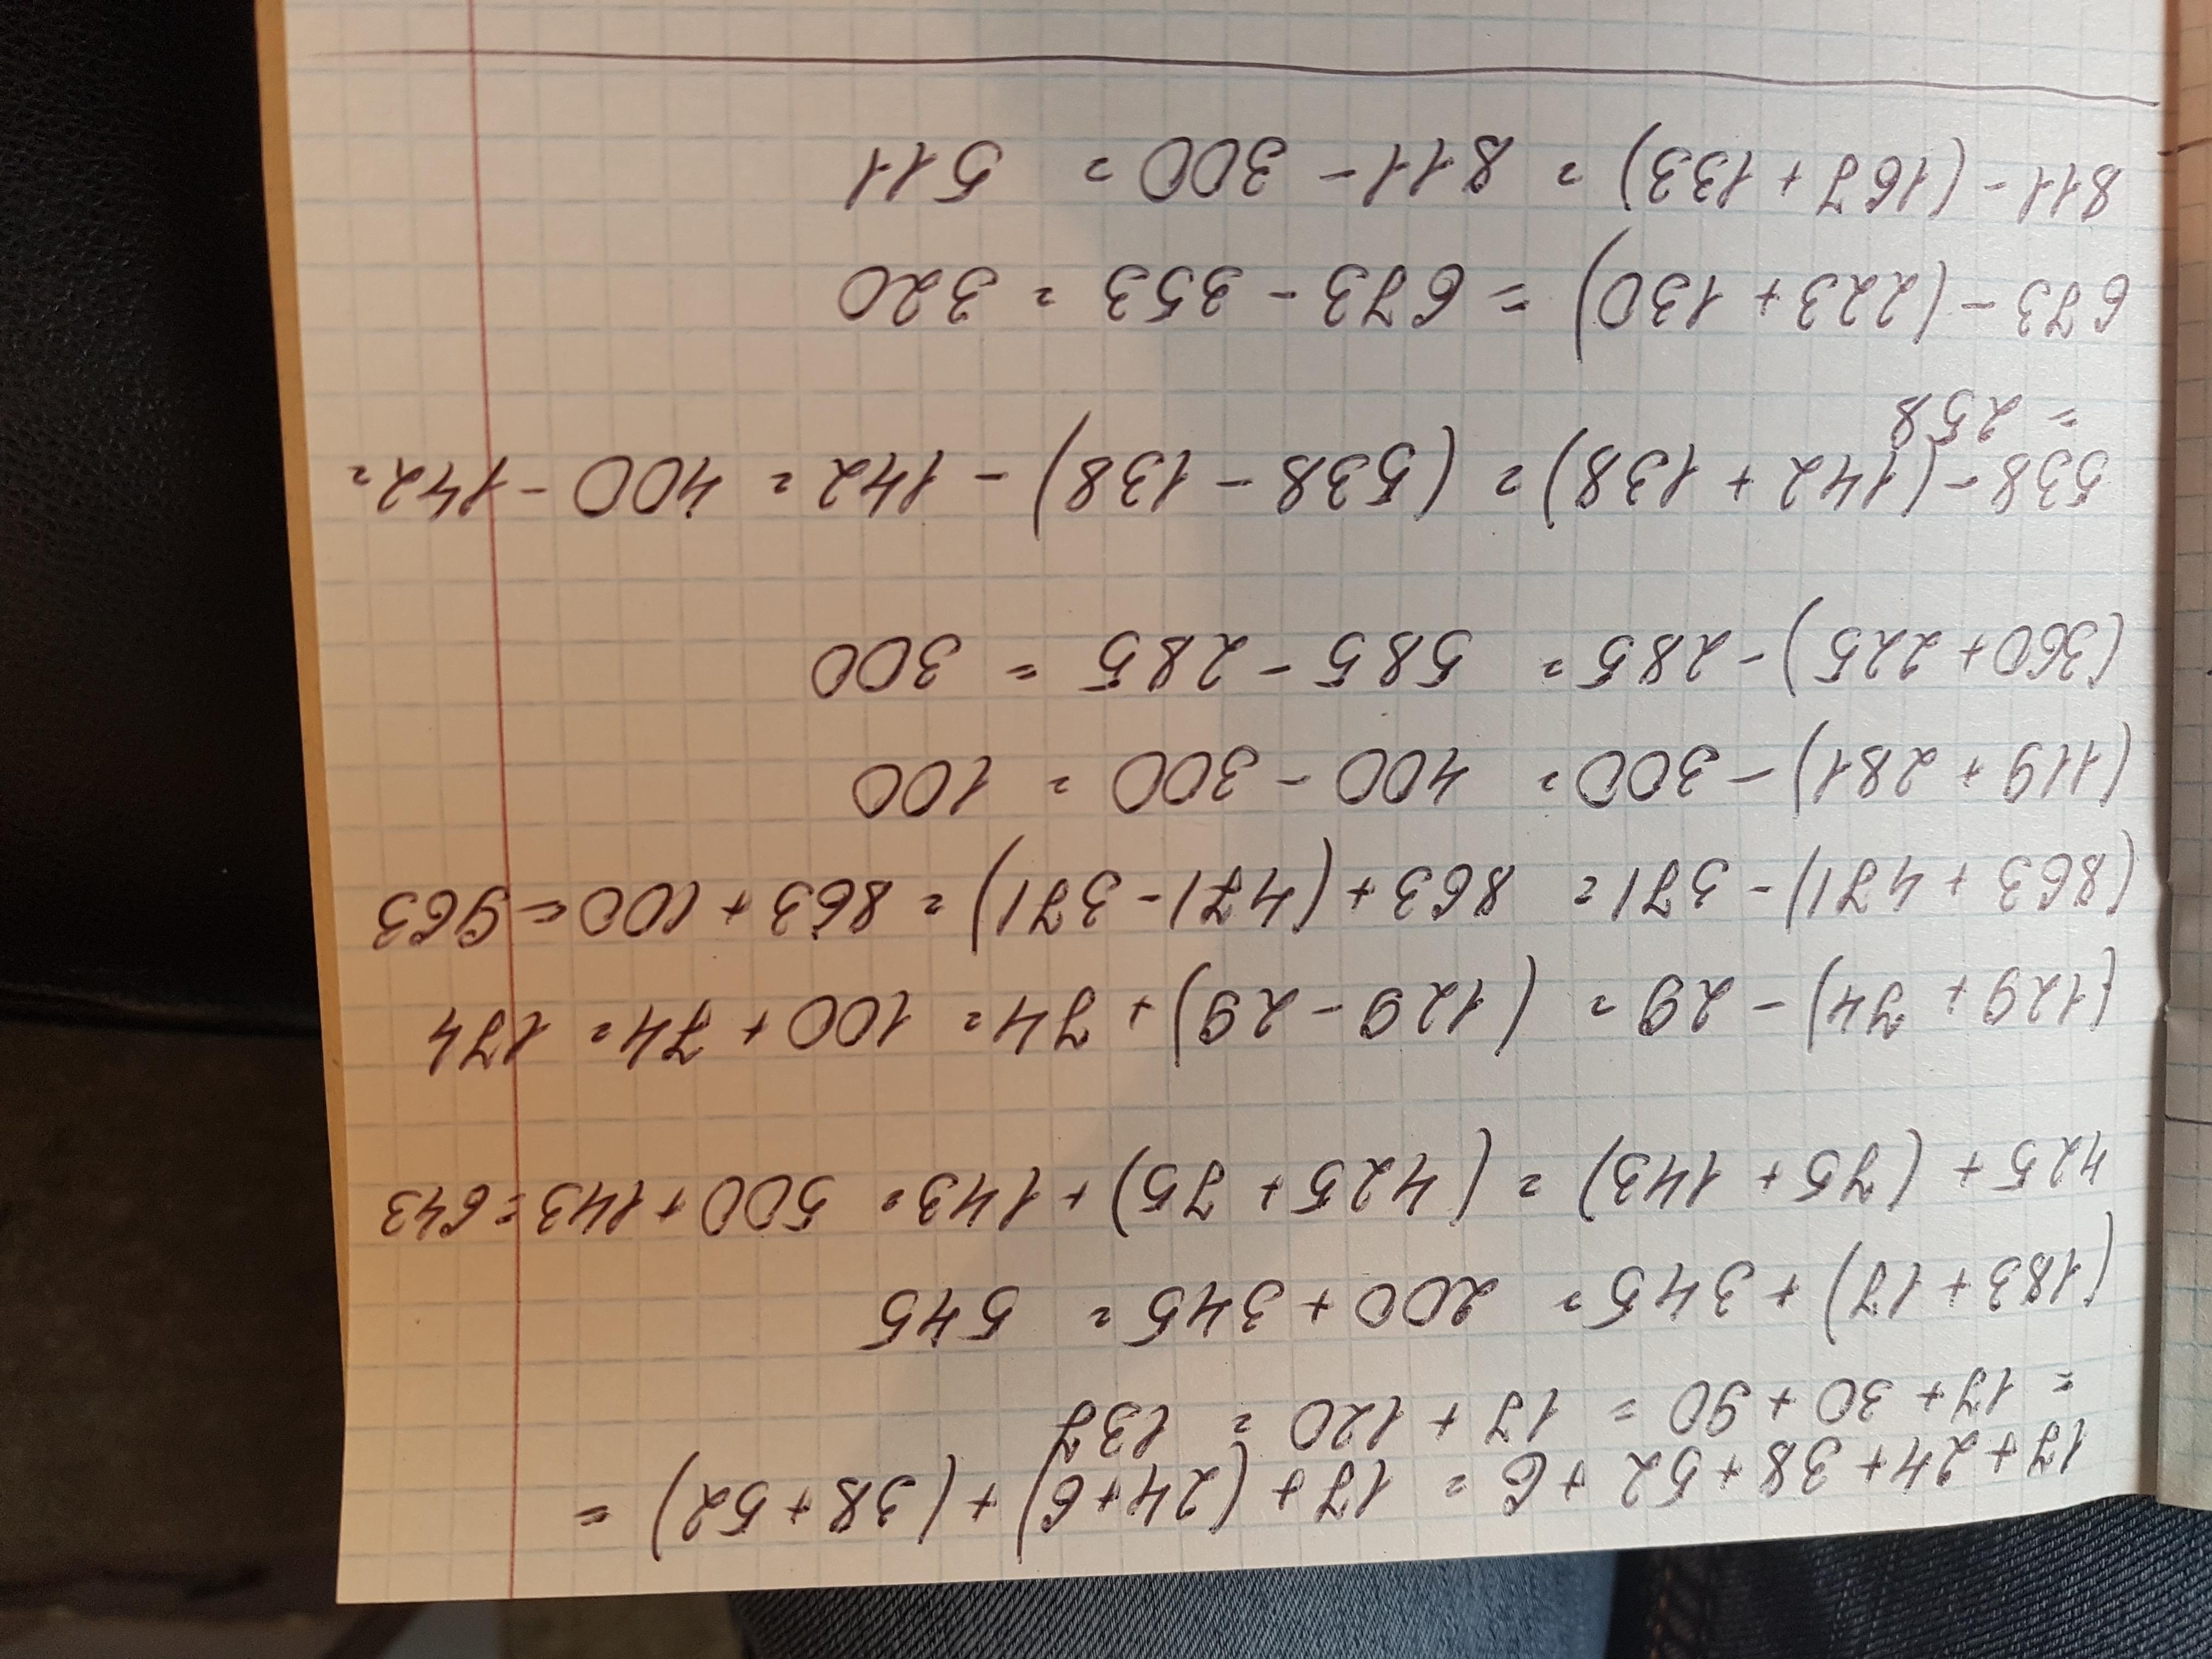 17+24+38+52+6 = 17+(24+6)+(38+52) =
= 17+30+90 = 17+120 = 137
(183+17)+345 = 200+345 = 545
425+(75+143) = (425+75)+143 = 500+143 = 643
(129+74)-29 = (129-29)+74 = 100+74 = 174
(863+471)-371 = 863+(471-371) = 863+100 = 963
(119+281)-300 = 400-300 = 100
(360+225)-285 = 585-285 = 300
538-(142+138) = (538-138)-142 = 400-142 =
= 258
673-(223+130) = 673-353 = 320
811-(167+133) = 811-300 = 511